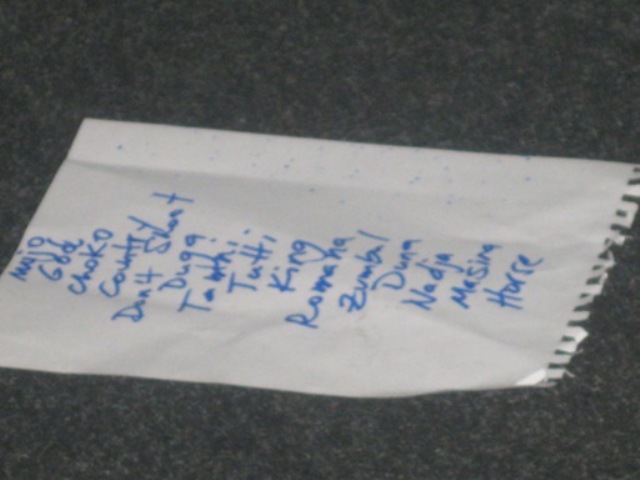 mijo
God
Choko
Country
Don't Shoot
Duga
Tutti
King
Romana
Zumbal
Duna
Nadja
Masina
Horse